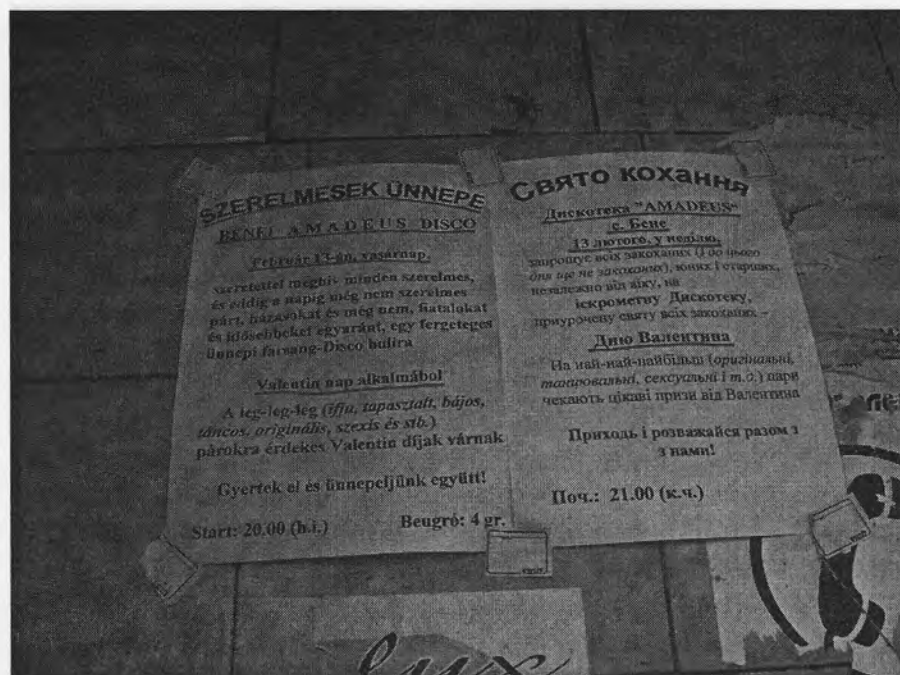 SZERELMESEK ÜNNEPE
BENEI AMADEUS DISCO
Február 13-án, vasárnap,
szeretettel meghív minden szerelmes,
és eddig a napig még nem szerelmes
párt, házasokat és még nem, fiatalokat
és idősebbeket egyaránt, egy fergeteges
ünnepi farsang-Disco bulira
Valentin nap alkalmából
A leg-leg-leg (ifjú, tapasztalt, bájos,
táncos, originális, szexis és stb.)
párokra érdekes Valentin díjak várnak
Gyertek el és ünnepeljünk együtt!
Start: 20.00 (h.i.) Beugró: 4 gr.
СВЯТО КОХАННЯ
Дискотека "AMADEUS"
с. Бене
13 лютого, у неділю,
запрошує всіх закоханих (і до цього
дня ще не закоханих), юних і старших,
незалежно від віку, на
іскрометну Дискотеку,
приурочену святу всіх закоханих –
Дню Валентина
На най-най-найбільш (оригінальні,
танцювальні, сексуальні і т.д.) пари
чекають цікаві призи від Валентина
Приходь і розважайся разом з
з нами!
Поч.: 21.00 (к.ч.)
lux